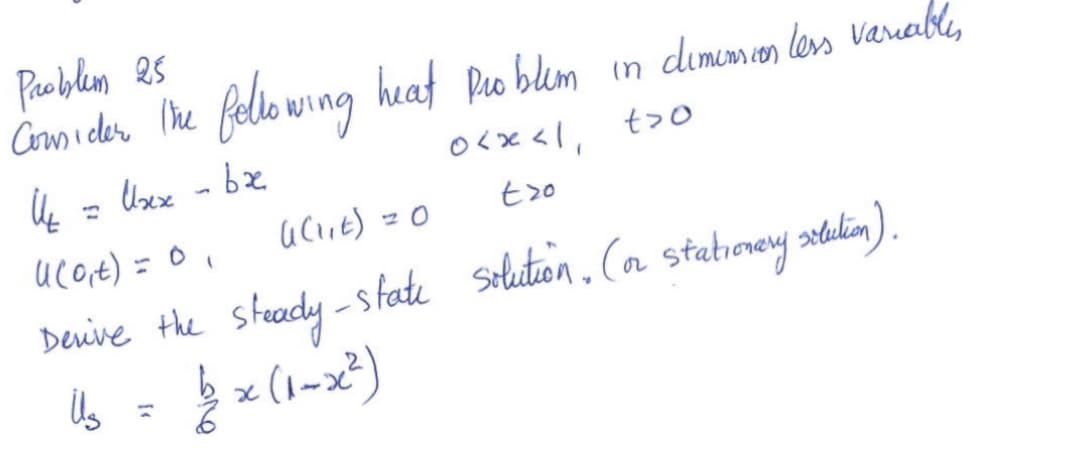 Problem 25
Consider the following heat problem in dimension less variables
0<x<1, t>0
Ut = Uxx - bx
u(0,t) = 0, u(1,t) = 0 t>0
Derive the steady-state solution. (or stationary solution).
Us = b/6 x (1-x²)